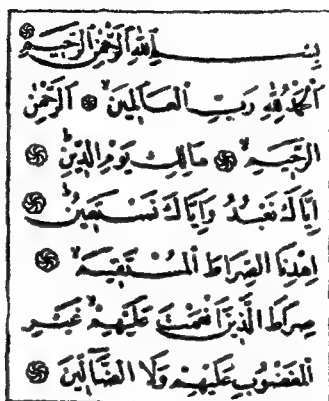 بِسْمِ اللهِ الرَّحْمٰنِ الرَّحِيْمِ ۝
اَلْحَمْدُ لِلّٰهِ رَبِّ الْعَالَمِيْنَ ۝ اَلرَّحْمٰنِ
الرَّحِيْمِ ۝ مَالِكِ يَوْمِ الدِّيْنِ ۝
اِيَّاكَ نَعْبُدُ وَاِيَّاكَ نَسْتَعِيْنُ ۝
اِهْدِنَا الصِّرَاطَ الْمُسْتَقِيْمَ ۝
صِرَاطَ الَّذِيْنَ اَنْعَمْتَ عَلَيْهِمْ غَيْرِ
الْمَغْضُوْبِ عَلَيْهِمْ وَلَا الضَّآلِّيْنَ ۝